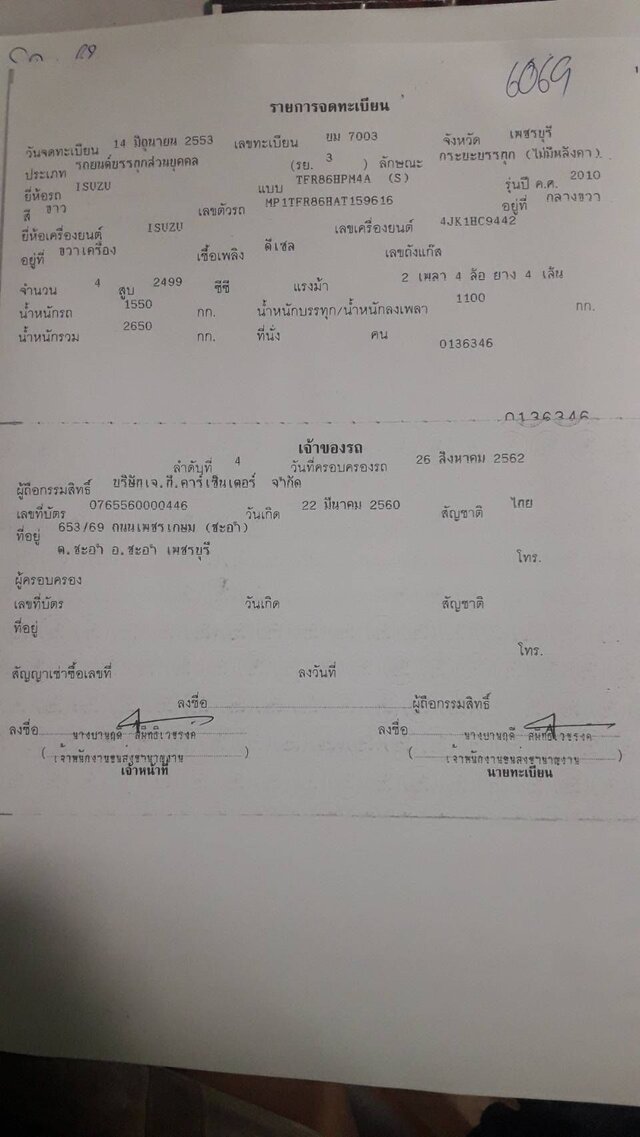 6069
รายการจดทะเบียน
วันจดทะเบียน 14 มิถุนายน 2553 เลขทะเบียน ยม 7003 จังหวัด เพชรบุรี
ประเภท รถยนต์บรรทุกส่วนบุคคล (รย. 3 ) ลักษณะ กระบะบรรทุก (ไม่มีหลังคา)
ยี่ห้อรถ ISUZU แบบ TFR86HPM4A (S) รุ่นปี ค.ศ. 2010
สี ขาว เลขตัวรถ MP1TFR86HAT159616 อยู่ที่ กลางขวา
ยี่ห้อเครื่องยนต์ ISUZU เลขเครื่องยนต์ 4JK1HC9442
อยู่ที่ ขวาเครื่อง เชื้อเพลิง ดีเซล เลขถังแก๊ส
จำนวน 4 สูบ 2499 ซีซี แรงม้า 2 เพลา 4 ล้อ ยาง 4 เส้น
น้ำหนักรถ 1550 กก. น้ำหนักบรรทุก/น้ำหนักลงเพลา 1100 กก.
น้ำหนักรวม 2650 กก. ที่นั่ง คน
0136346
0136346
เจ้าของรถ
ลำดับที่ 4 วันที่ครอบครองรถ 26 สิงหาคม 2562
ผู้ถือกรรมสิทธิ์ บริษัทเจ.ที.คาร์เซ็นเตอร์ จำกัด
เลขที่บัตร 0765560000446 วันเกิด 22 มีนาคม 2560 สัญชาติ ไทย
ที่อยู่ 653/69 ถนนเพชรเกษม (ชะอำ)
ต.ชะอำ อ.ชะอำ เพชรบุรี
โทร.
ผู้ครอบครอง
เลขที่บัตร วันเกิด สัญชาติ
ที่อยู่
โทร.
สัญญาเช่าซื้อเลขที่ ลงวันที่
ลงชื่อ ผู้ถือกรรมสิทธิ์
ลงชื่อ ลงชื่อ
( เจ้าพนักงานขนส่งชำนาญงาน ) ( เจ้าพนักงานขนส่งชำนาญงาน )
เจ้าหน้าที่ นายทะเบียน